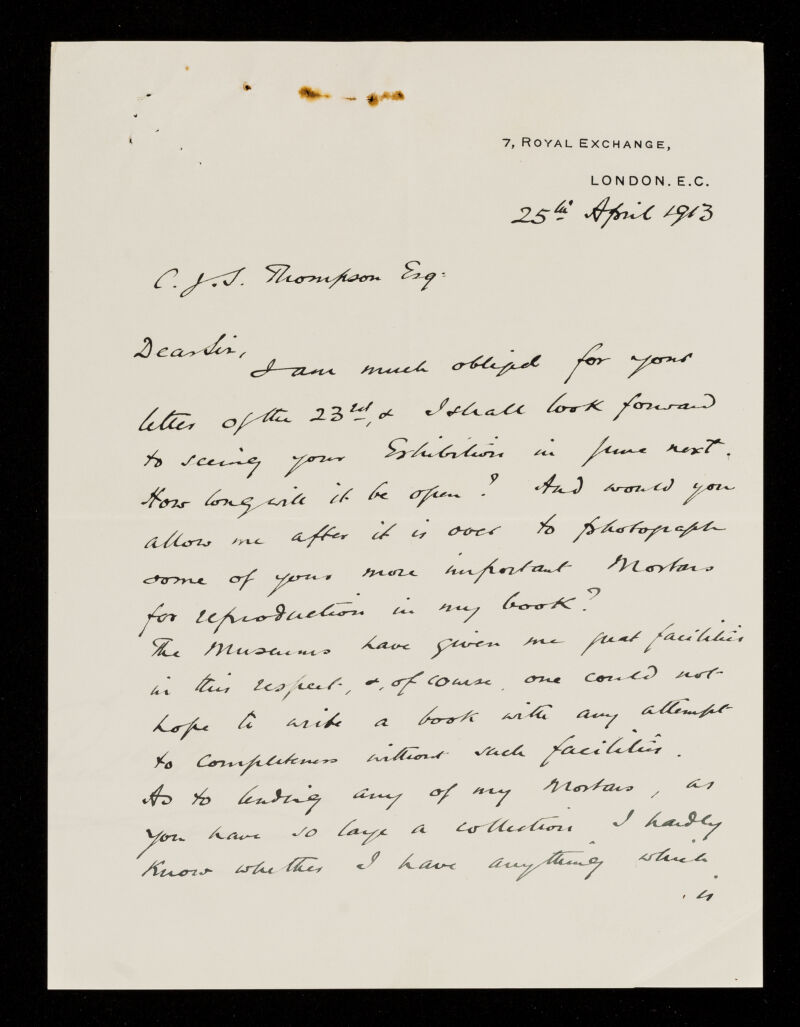 7, ROYAL EXCHANGE,
LONDON. E.C.
25th April 1913
C. J. S. Thompson Esq.
Dear Sir,
I am much obliged for your
letter of the 23rd, & I shall look forward
to seeing your Exhibition in June next.
How long will it be open? And would you
allow me after it is over to photograph
some of your more important Mortars
for reproduction in my book?
The Museums have given me great facilities
in this respect, &, of course, one could not
hope to write a book with any attempt
to completeness without such facilities.
As to lending any of my Mortars, as
you have so large a collection I hardly
know whether I have anything which
is